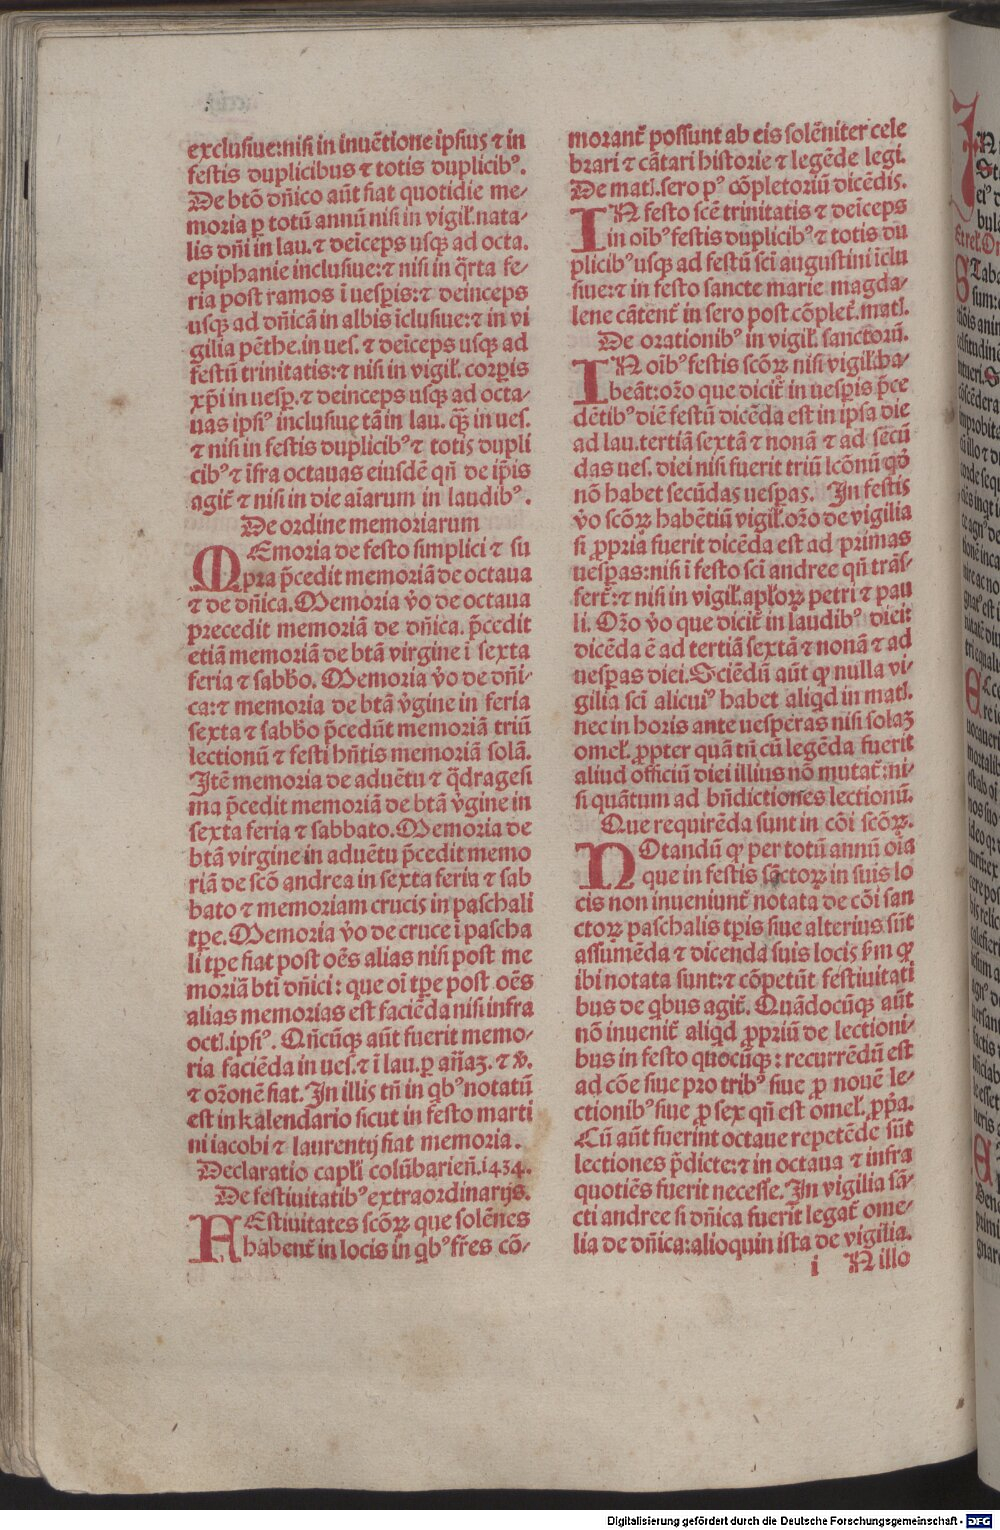 exclusiue:nisi in inuētione ipsius ⁊ in
festis duplicibus ⁊ totis duplicibꝰ.
De btō dn̄ico aūt fiat quotidie me⸗
moria ꝑ totū annū nisi in vigil̄. nata⸗
lis dn̄i in lau. ⁊ deīceps usqꝫ ad octa.
epiphanie inclusiue:⁊ nisi in q̄rta fe⸗
ria post ramos ī uesꝑis:⁊ deinceps
usqꝫ ad dn̄icā in albis īclusiue:⁊ in vi
gilia pēthe. in ues. ⁊ deīceps usqꝫ ad
festū trinitatis:⁊ nisi in vigil̄. corꝑis
xp̄i in uesꝑ. ⁊ deinceps usqꝫ ad octa⸗
uas ipsiꝰ inclusiue tā in lau. q̄ꝫ in ues.
⁊ nisi in festis duplicibꝰ ⁊ totis dupli
cibꝰ ⁊ īfra octauas eiusdē qn̄ de ip̄is
agit̄ ⁊ nisi in die aīarum in laudibꝰ.
De ordine memoriarum
MEmoria de festo simplici ⁊ su
pra p̄cedit memoriā de octaua
⁊ de dn̄ica. Memoria v̄o de octaua
precedit memoriā de dn̄ica. p̄cedit
etiā memoriā de btā virgine ī sexta
feria ⁊ sabb̄o. Memoria v̄o de dn̄i⸗
ca:⁊ memoria de btā v̄gine in feria
sexta ⁊ sabb̄o p̄cedūt memoriā triū
lectionū ⁊ festi hn̄tis memoriā solā.
Itē memoria de aduētu ⁊ q̄dragesi
ma p̄cedit memoriā de btā v̄gine in
sexta feria ⁊ sabbato. Memoria de
btā virgine in aduētu p̄cedit memo
riā de scō andrea in sexta feria ⁊ sab
bato ⁊ memoriam crucis in paschali
tp̄e. Memoria v̄o de cruce ī pascha
li tp̄e fiat post oēs alias nisi post me
moriā bti dn̄ici: que oī tp̄e post oēs
alias memorias est faciēda nisi infra
octī. ipsiꝰ. Qn̄cūqꝫ aūt fuerit memo⸗
ria faciēda in ues. ⁊ ī lau. ꝑ an̄aꝫ. ⁊ v̄.
⁊ or̄onē fiat. In illis tn̄ in qbꝰ notatū
est in kalendario sicut in festo marti
ni iacobi ⁊ laurentij fiat memoria.
Declaratio capl̄i colūbarien̄. 1434.
De festiuitatibꝰ extraordinarijs.
FEstiuitates scōꝝ que solēnes
habent̄ in locis in qbꝰ fr̄es cō⸗
morant̄ possunt ab eis solēniter cele
brari ⁊ cātari historie ⁊ legēde legi.
De matī. sero pꝰ cōpletoriū dicēdis.
IN festo scē trinitatis ⁊ deīceps
in oībꝰ festis duplicibꝰ ⁊ totis du
plicibꝰ usqꝫ ad festū sci augustini īclu
siue:⁊ in festo sancte marie magda⸗
lene cātent̄ in sero post cōplet̄. matī.
De orationibꝰ in vigil̄. sanctorū.
IN oībꝰ festis scōꝝ nisi vigil̄. ha⸗
beāt:or̄o que dicit̄ in uesꝑis p̄ce
dētibꝰ diē festū dicēda est in ipsa die
ad lau. tertiā sextā ⁊ nonā ⁊ ad secū
das ues. diei nisi fuerit triū lcōnū qd̄
nō habet secūdas uesꝑas. In festis
v̄o scōꝝ habētiū vigil̄. or̄o de vigilia
si ꝓpria fuerit dicēda est ad primas
uesꝑas:nisi ī festo sci andree qn̄ trās⸗
fert̄:⁊ nisi in vigil̄. apl̄oꝝ petri ⁊ pau
li. Or̄o v̄o que dicit̄ in laudibꝰ diei:
dicēda ē ad tertiā sextā ⁊ nonā ⁊ ad
uesꝑas diei. Sciēdū aūt ꝙ nulla vi⸗
gilia sci alicuiꝰ habet aliqd in matī.
nec in horis ante uesperas nisi solaꝫ
omel̄. ꝓpter quā tn̄ cū legēda fuerit
aliud officiū diei illius nō mutat̄:ni⸗
si quātum ad bn̄dictiones lectionū.
Que requirēda sunt in cōi scōꝝ.
NOtandū ꝙ per totū annū oīa
que in festis sāctoꝝ in suis lo
cis non inueniunt̄ notata de cōi san
ctoꝝ paschalis tp̄is siue alterius sūt
assumēda ⁊ dicenda suis locis ẜm ꝙ
ibi notata sunt:⁊ cōpetūt festiuitati
bus de qbus agit̄. Quādocūqꝫ aūt
nō inuenit̄ aliqd ꝓpriū de lectioni⸗
bus in festo quocūqꝫ: recurrēdū est
ad cōe siue pro tribꝰ siue ꝓ nouē le⸗
ctionibꝰ siue ꝓ sex qn̄ est omel̄. ꝓp̄a.
Cū aūt fuerint octaue repetēde sūt
lectiones p̄dicte:⁊ in octaua ⁊ infra
quotiēs fuerit necesse. In vigilia sā⸗
cti andree si dn̄ica fuerit legat̄ ome⸗
lia de dn̄ica:alioquin ista de vigilia.
i N illo
Digitalisierung gefördert durch die Deutsche Forschungsgemeinschaft - DFG